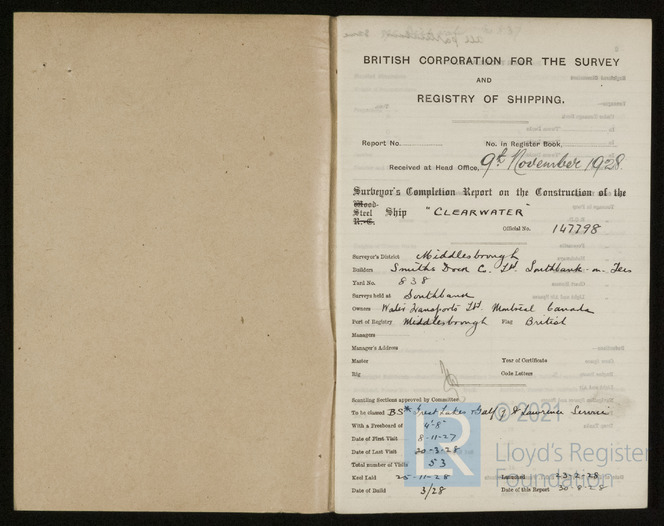 BRITISH CORPORATION FOR THE SURVEY
AND
REGISTRY OF SHIPPING.
Report No. No. in Register Book,
Received at Head Office, 9th November 1928
Surveyor's Completion Report on the Construction of the
Wood
Steel Ship "CLEARWATER"
R.-C.
Official No. 147798
Surveyor's District Middlesborough
Builders Smiths Dock Co. Ltd Southbank-on-Tees
Yard No. 838
Surveys held at Southbank
Owners Water Transports Ltd. Montreal Canada
Port of Registry Middlesborough Flag British
Managers
Manager's Address
Master Year of Certificate
Rig Code Letters
Scantling Sections approved by Committee
To be classed BS* Great Lakes & Gulf of St Lawrence Service
With a Freeboard of 4'-8"
Date of First Visit 8-11-27
Date of Last Visit 30-3-28
Total number of Visits 53
Keel Laid 25-11-28 Launched 23-2-28
Date of Build 3/28 Date of this Report 30-8-28
© 2021
LR
Lloyd's Register
Foundation